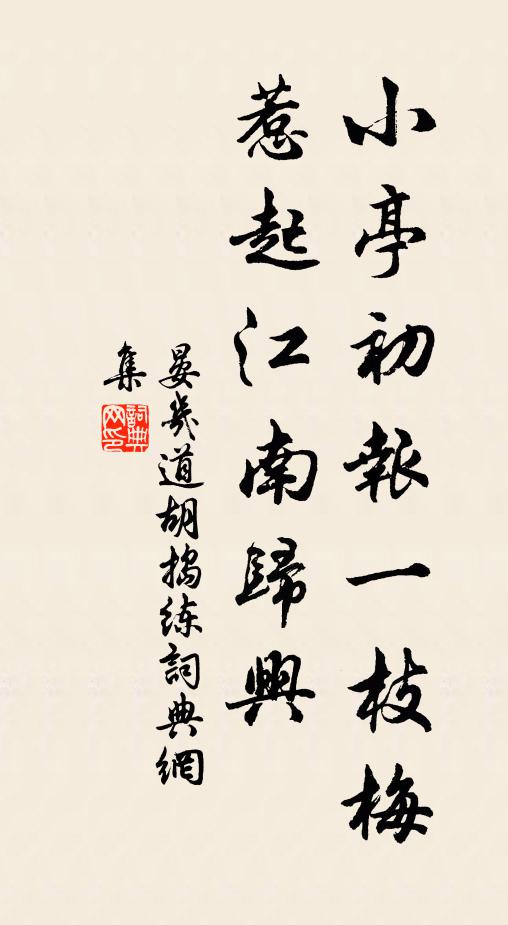 小亭初報一枝梅
惹起江南歸興
晏幾道胡搗练詞典網
集
詞典
网印